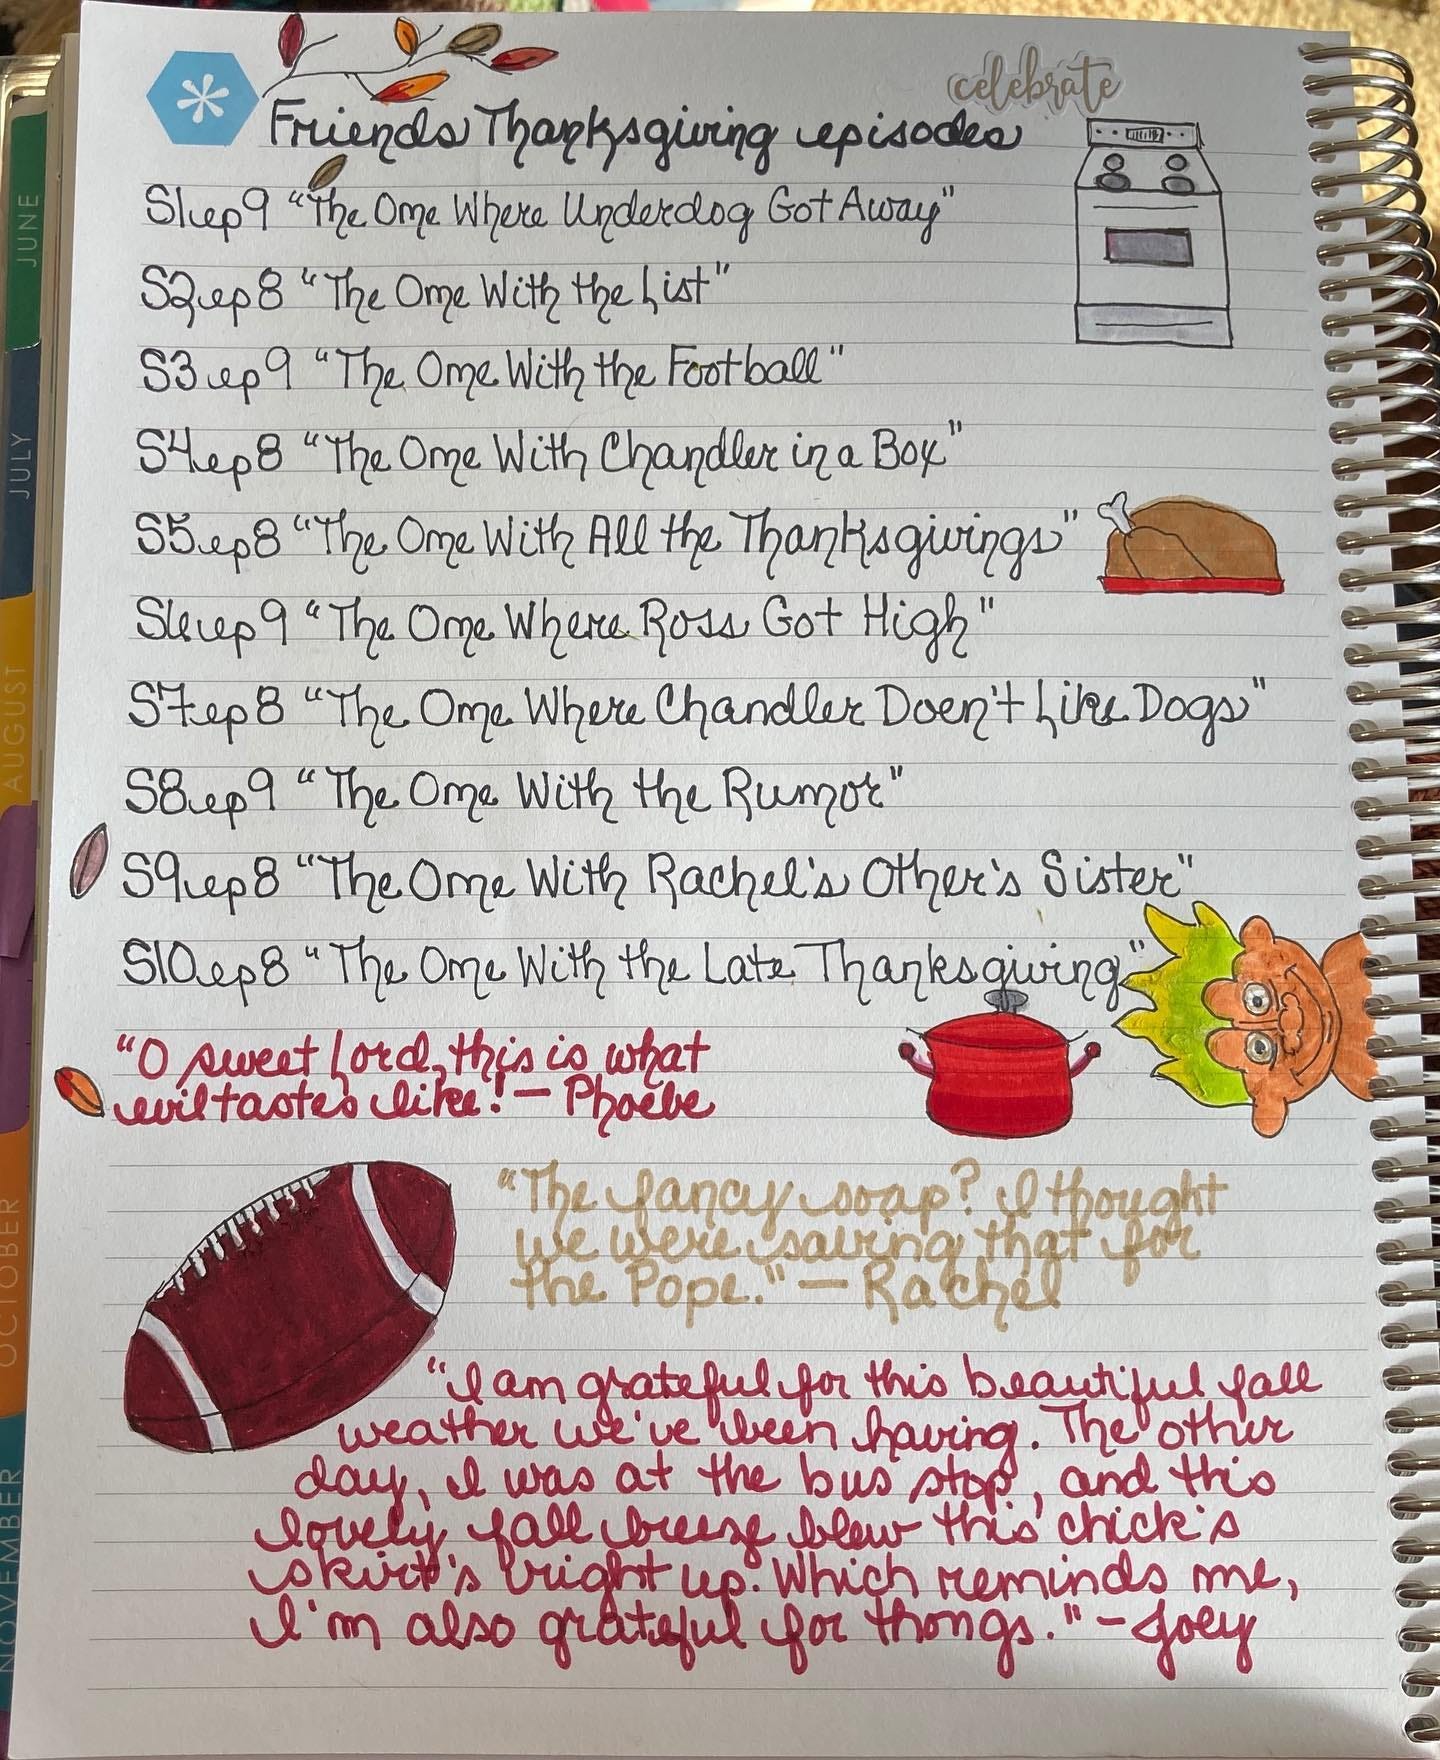 celebrate
Friends Thanksgiving episodes
S1 ep9 "The One Where Underdog Got Away"
S2 ep8 "The One With the List"
S3 ep9 "The One With the Football"
S4 ep8 "The One With Chandler in a Box"
S5 ep8 "The One With All the Thanksgivings"
S6 ep9 "The One Where Ross Got High"
S7 ep8 "The One Where Chandler Doen't Like Dogs"
S8 ep9 "The One With the Rumor"
S9 ep8 "The One With Rachel's Other's Sister"
S10 ep8 "The One With the Late Thanksgiving"
"O sweet Lord, this is what
evil tastes like! — Phoebe
"The fancy soap? I thought
we were saving that for
the Pope." — Rachel
"I am grateful for this beautiful fall
weather we've been having. The other
day, I was at the bus stop, and this
lovely fall breeze blew this chick's
skirt's right up. Which reminds me,
I'm also grateful for thongs." - Joey
JUNE
JULY
AUGUST
OCTOBER
NOVEMBER